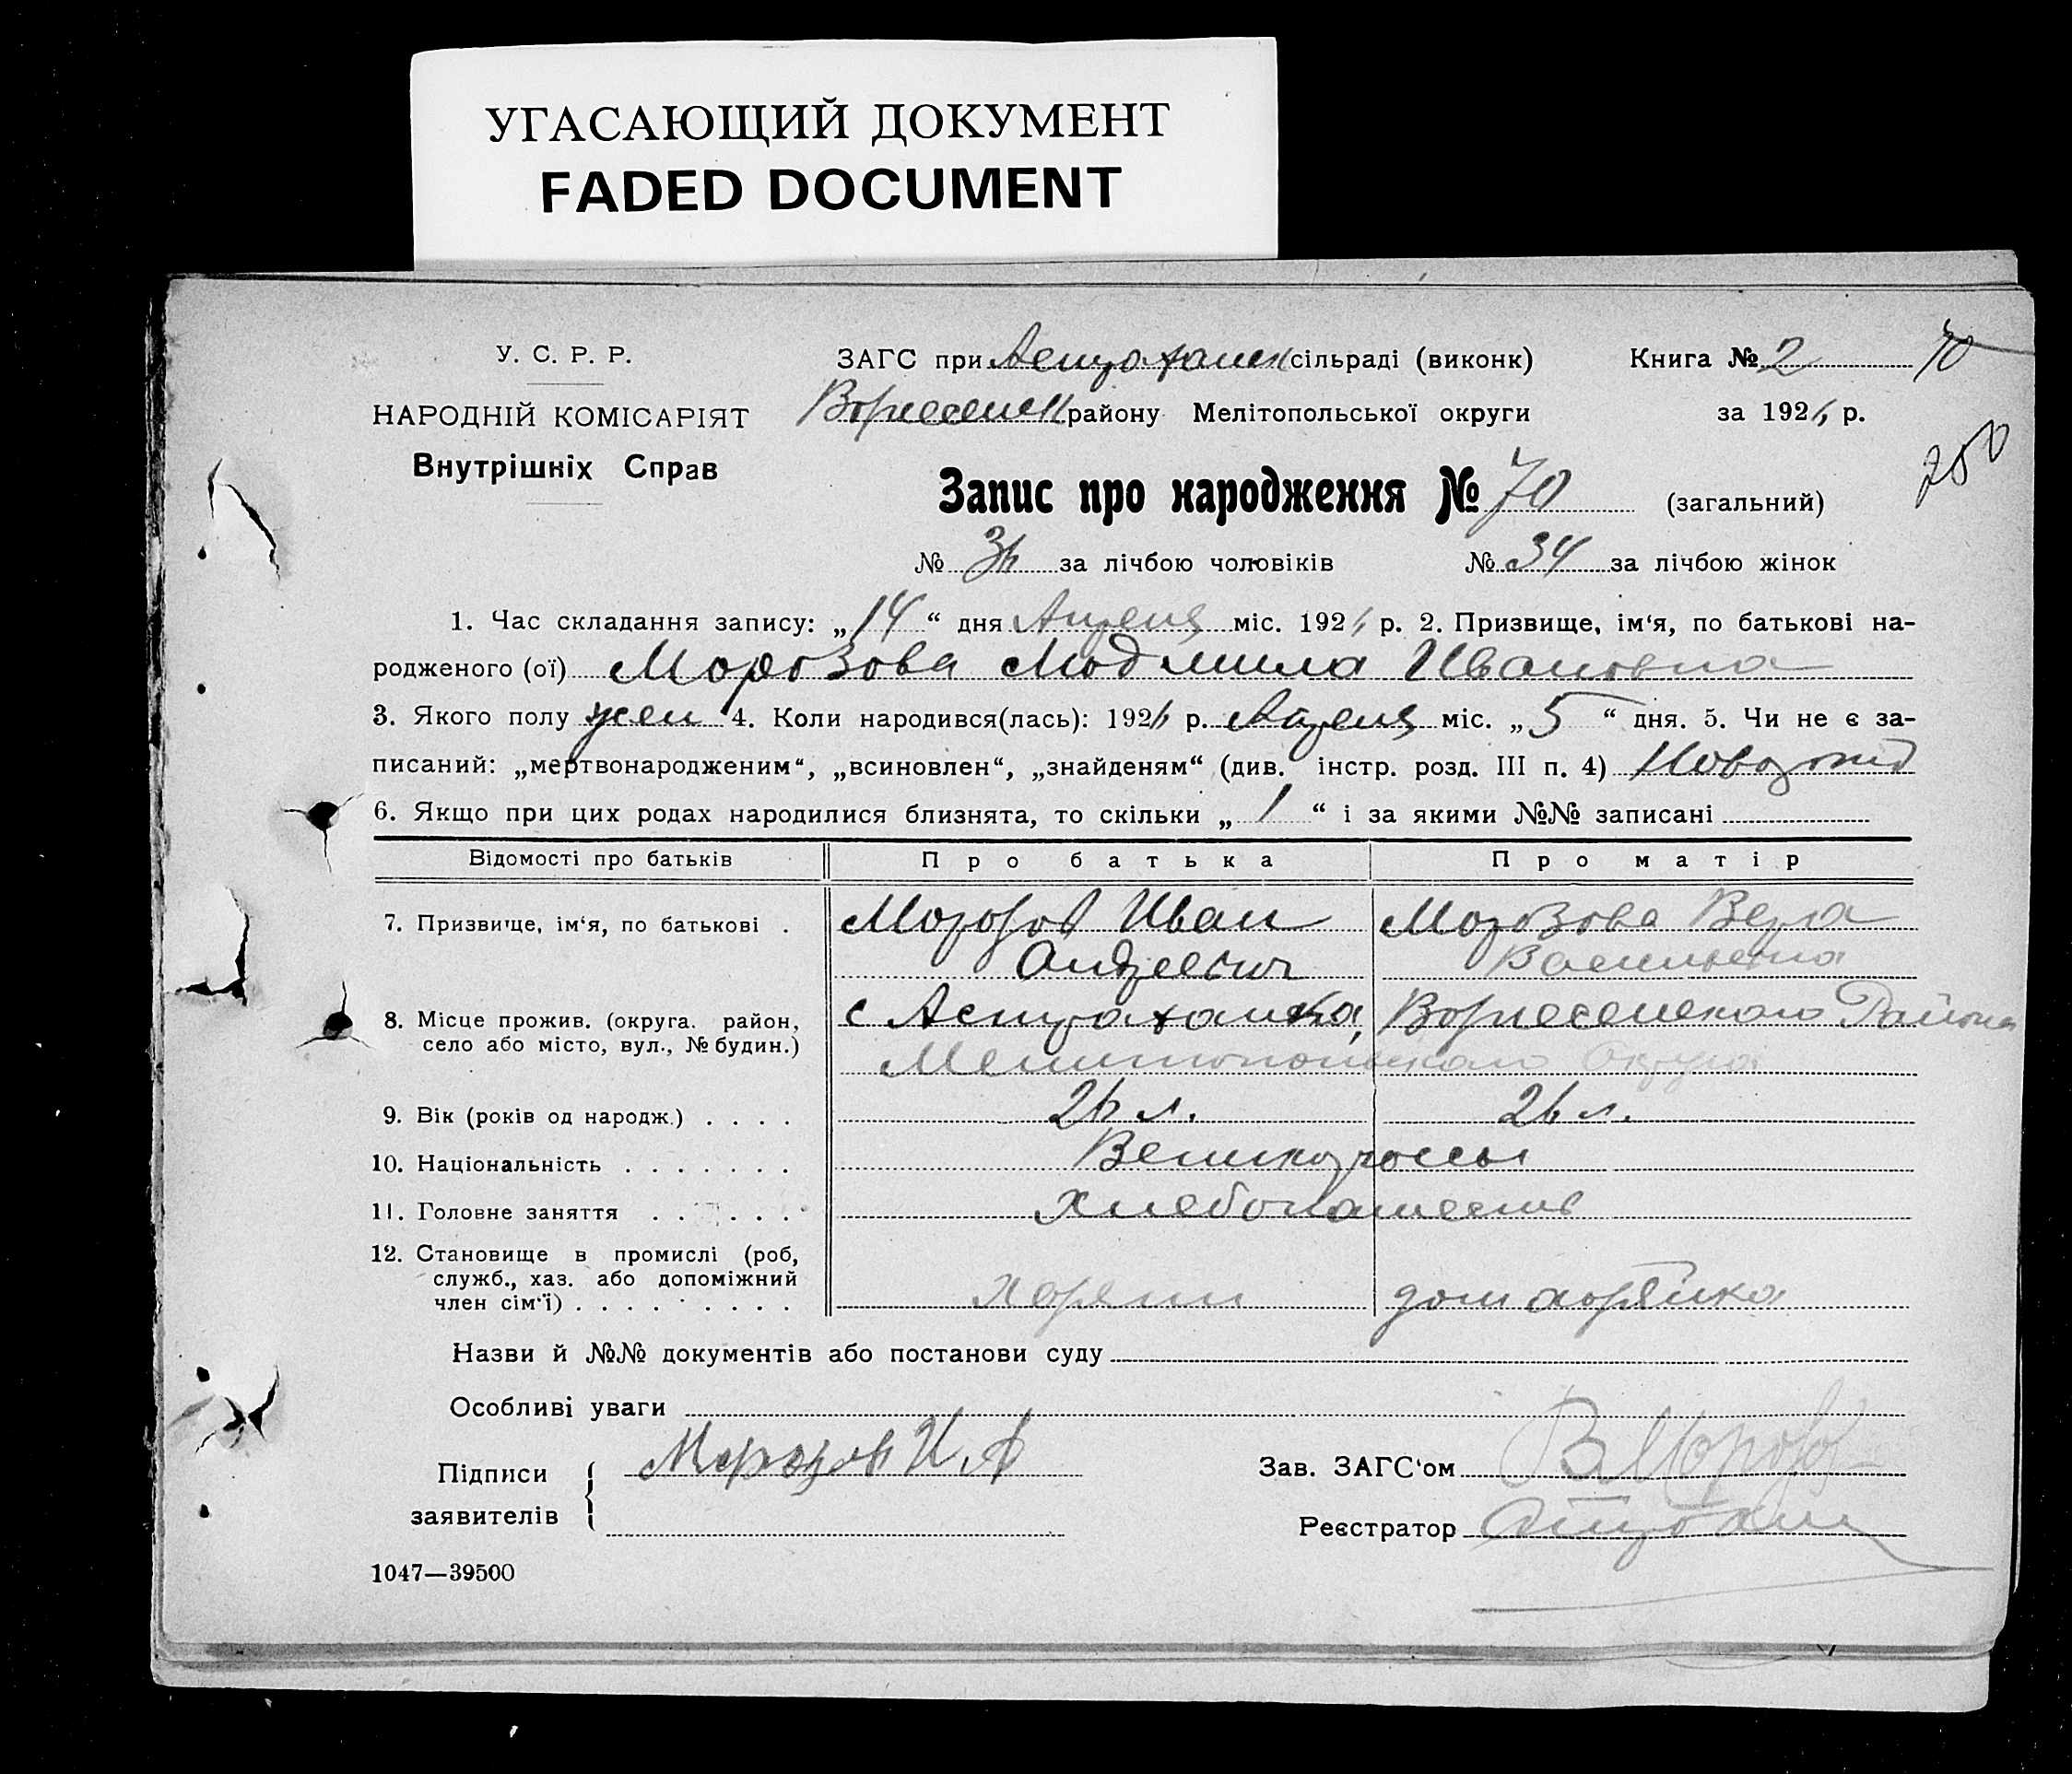 УГАСАЮЩИЙ ДОКУМЕНТ
FADED DOCUMENT
У. С. Р. Р.
НАРОДНІЙ КОМІСАРІЯТ
Внутрішніх Справ
ЗАГС при Астраханск сільраді (виконк)
Вознесенск району Мелітопольської округи
Книга № 2
70
за 1926 р.
250
Запис про народження № 70 (загальний)
№ 36 за лічбою чоловіків № 34 за лічбою жінок
1. Час складання запису: „14“ дня Апреля міс. 1926 р. 2. Призвище, ім‘я, по батькові на-
родженого (ої) Морозова Людмила Ивановна
3. Якого полу жен 4. Коли народився(лась): 1926 р. Апреля міс. „5“ дня. 5. Чи не є за-
писаний: „мертвонародженим“, „всиновлен“, „знайденям“ (див. інстр. розд. III п. 4) Новорожд
6. Якщо при цих родах народилися близнята, то скільки „1“ і за якими №№ записані
Відомості про батьків Про батька Про матір
7. Призвище, ім‘я, по батькові . Морозов Иван Морозова Вера
Андреевич Васильевна
8. Місце прожив. (округа. район, село або місто, вул., № будин.) с Астраханка, Вознесенского Района
Мелитопольского Округа
9. Вік (років од народж.) . . . . 26 л. 26 л.
10. Національність . . . . . . . Великороссы
11. Головне заняття . . . . . . Хлебопашество
12. Становище в промислі (роб,
служб., хаз. або допоміжний
член сім‘ї) . . . . . . . . . хозяин домохозяйка
Назви й №№ документів або постанови суду
Особливі уваги
Підписи
заявителів
Морозов И. А
Зав. ЗАГС‘ом В Морозов
Реєстратор
1047—39500